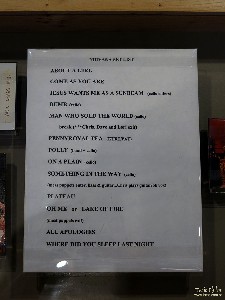 NIRVANA SET LIST
ABOUT A GIRL
COME AS YOU ARE
JESUS WANTS ME AS A SUNBEAM (cello
DUMB (cello)
MAN WHO SOLD THE WORLD (cello)
break Chris, Dave and Lori exit)
PENNYROYAL TEA
POLLY
ON A PLAIN (cello)
SOMETHING IN THE WAY (cello)
(meat puppets enter,
PLATEAU
OH ME or LAKE OF FIRE
(meat puppets exit)
ALL APOLOGIES
WHERE DID YOU SLEEP LAST NIGHT